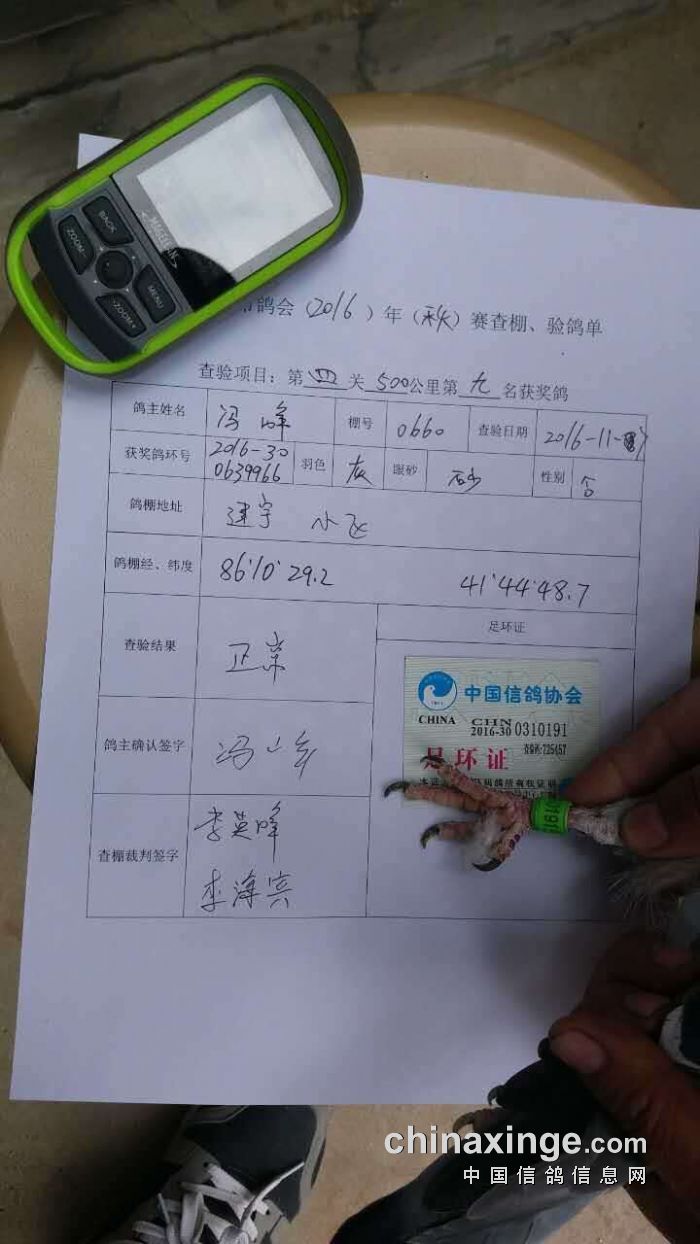 MAGELLAN
BACK
ZOOM-
MENU
ZOOM+
鸽会（2016）年（秋）赛查棚、验鸽单
查验项目：第四关500公里第九名获奖鸽
鸽主姓名 冯峰 棚号 0660 查验日期 2016-11-
获奖鸽环号 2016-30 0639966 羽色 灰 眼砂 砂 性别
鸽棚地址 建宇
鸽棚经、纬度 86°10'29.2 41°44'48.7
查验结果 正常
足环证
鸽主确认签字 冯
查棚裁判签字 李英峰
李海宾
中国信鸽协会
CHINA CHN
2016-30 0310191
足环证
chinaxinge.com
中国信鸽信息网